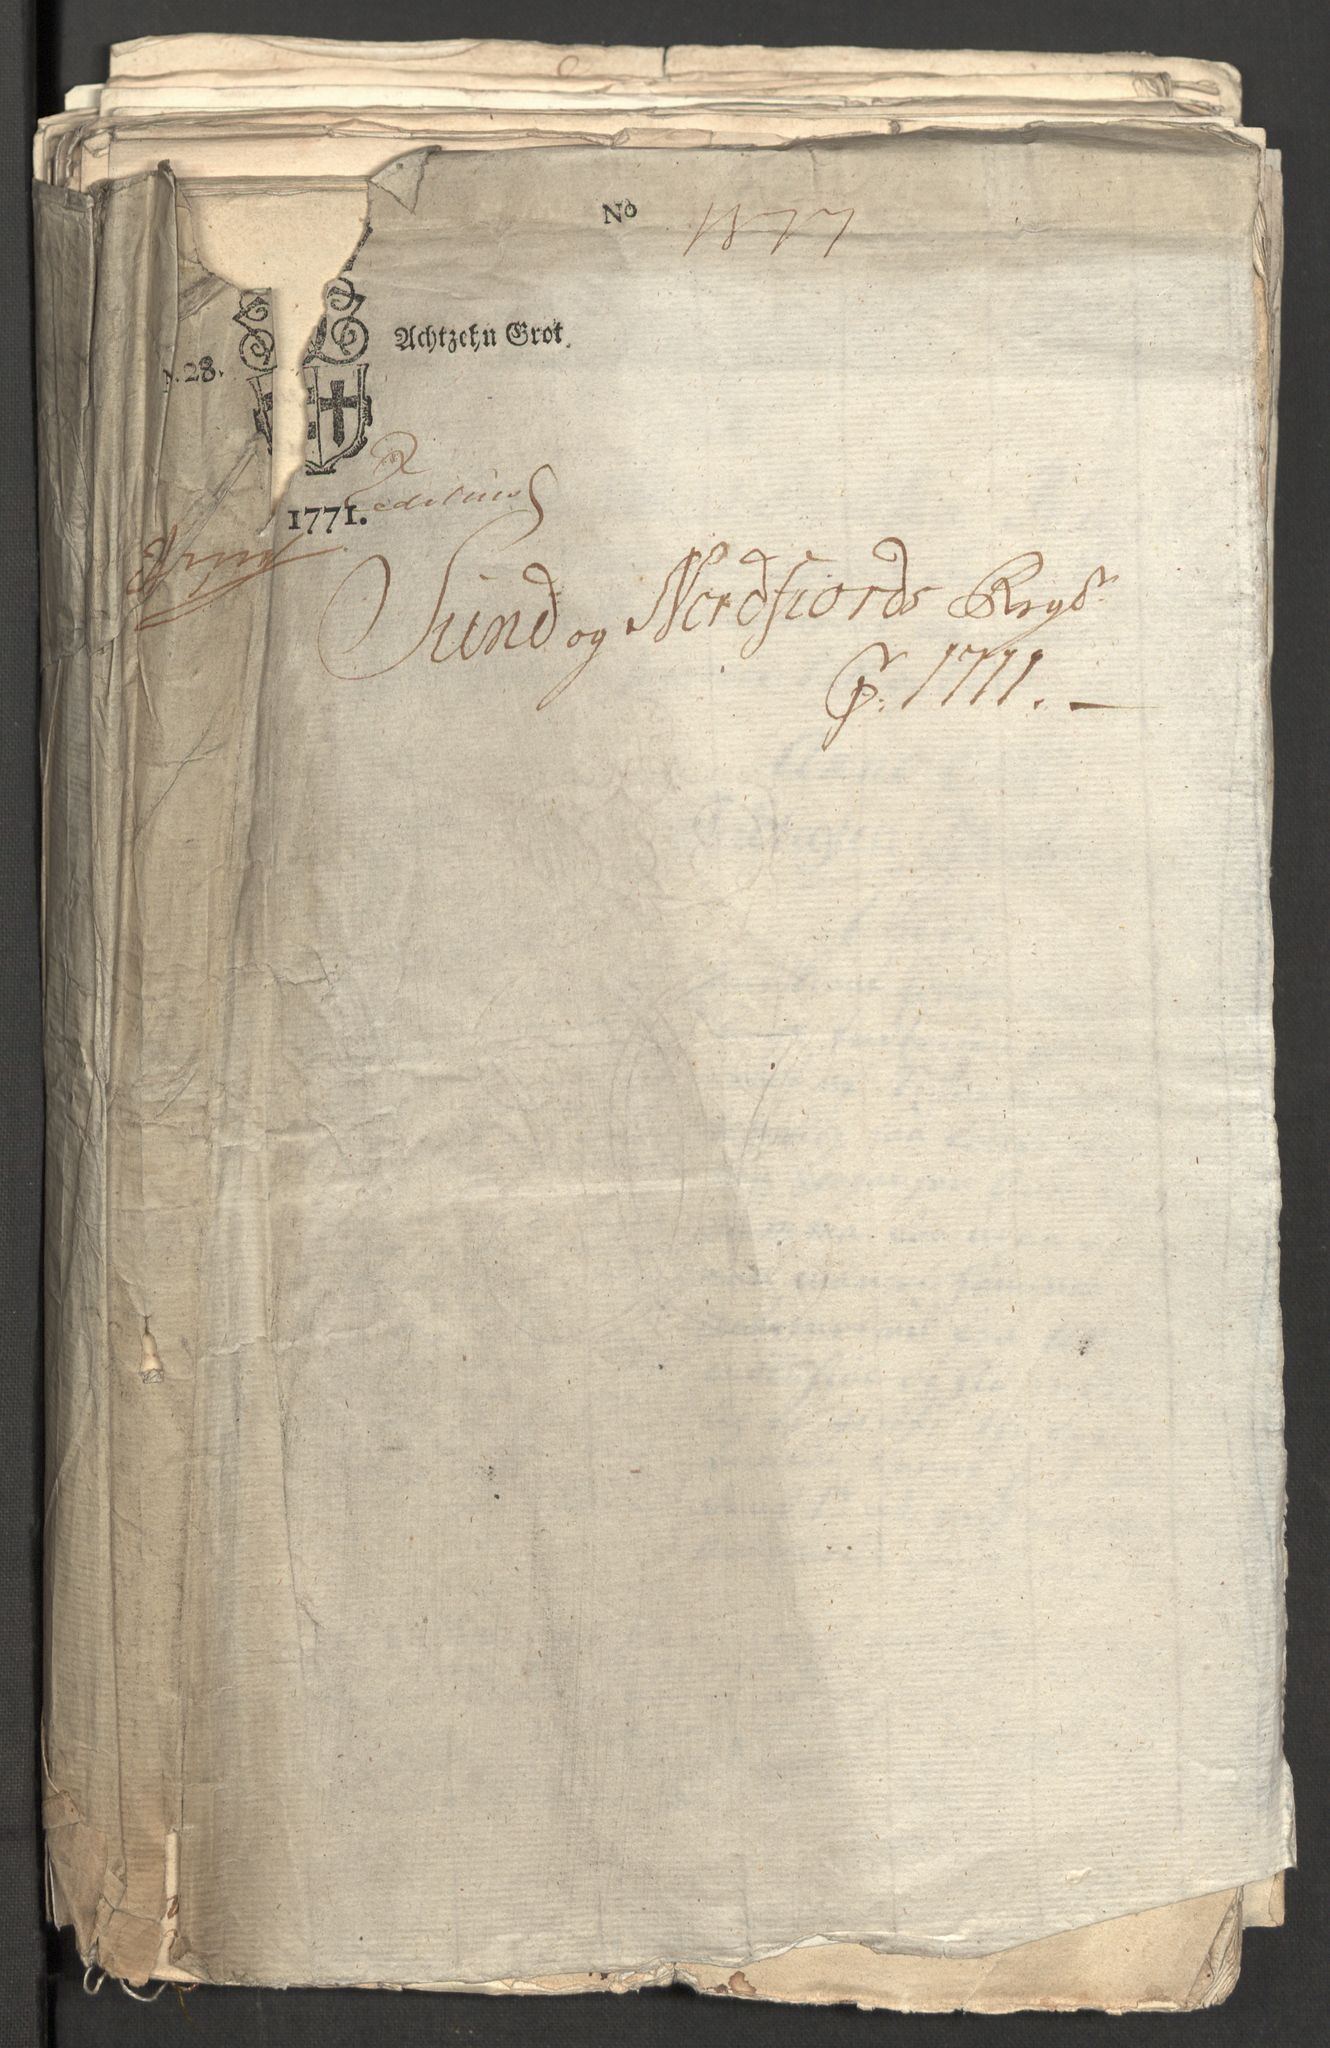 No 1877
Achtzehn Grot.
28.
1771.
Sund og Nordfiords Regs.
pr. 1711.